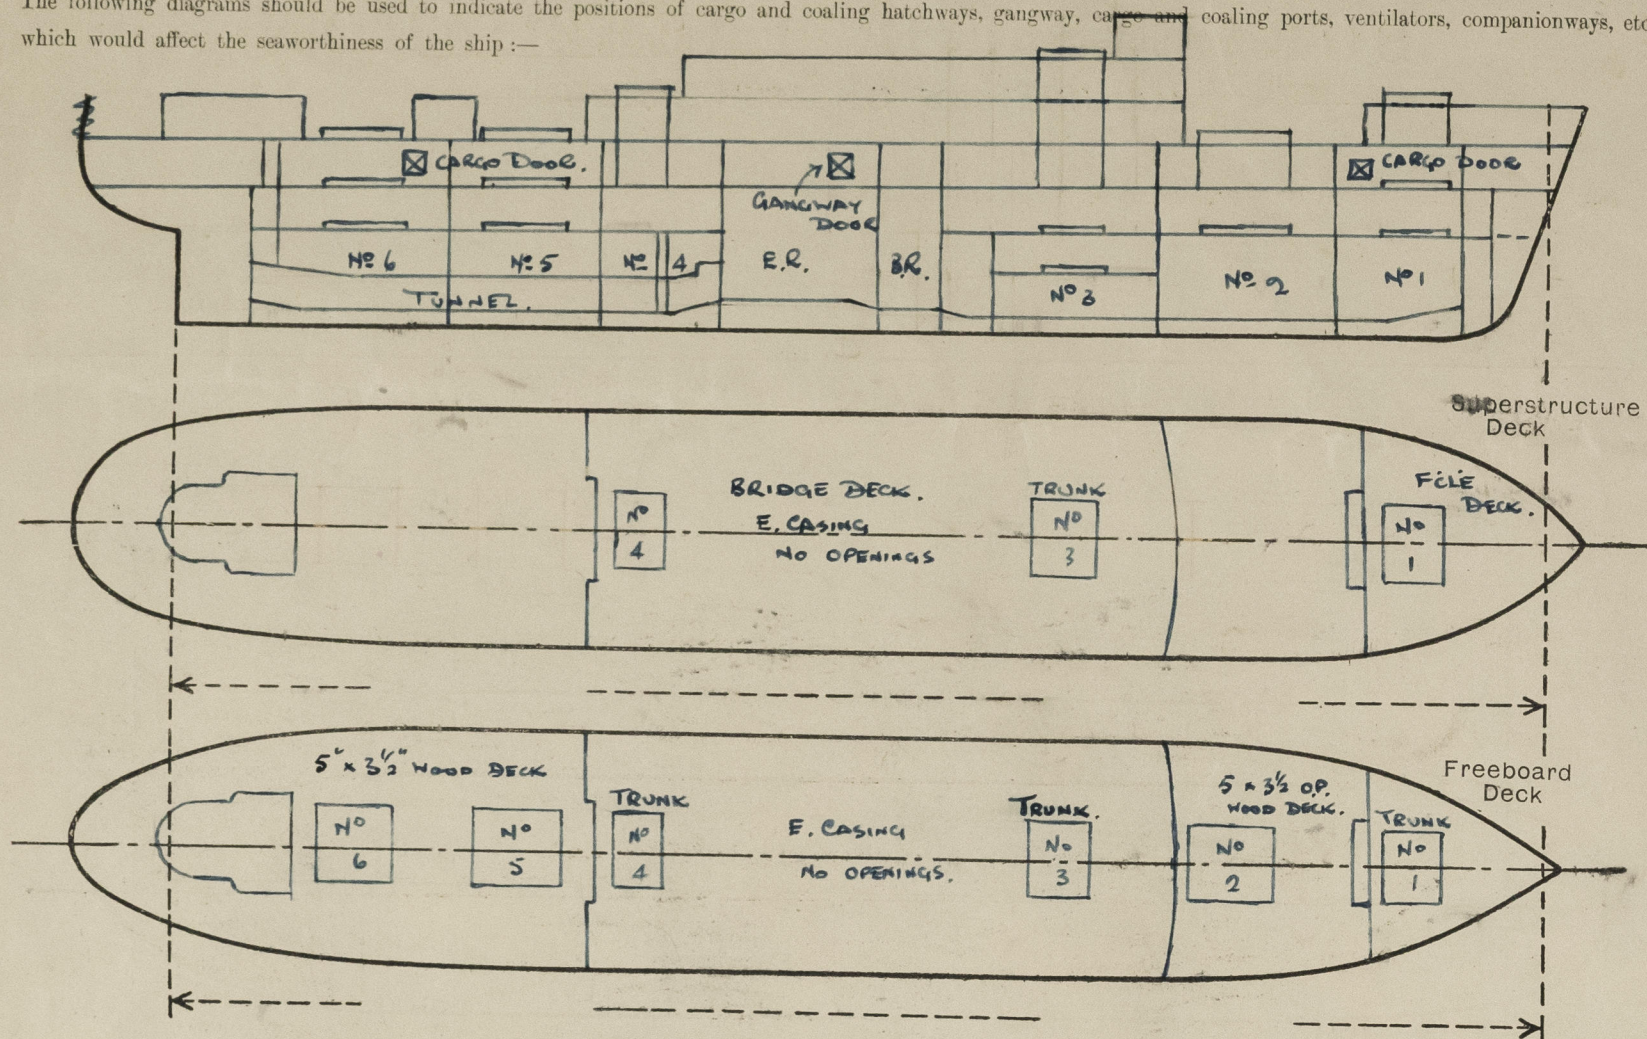 The following diagrams should be used to indicate the positions of cargo and coaling hatchways, gangway, cargo and coaling ports, ventilators, companionways, etc
which would affect the seaworthiness of the ship :—
CARGO DOOR.
CARGO DOOR
GANGWAY
DOOR
No 6
No 5
No 4
E.R.
B.R.
No 3
No 2
No 1
TUNNEL.
Superstructure
Deck
BRIDGE DECK.
E. CASING
NO OPENINGS
TRUNK
No
4
No
3
F'CLE
DECK.
No
1
Freeboard
Deck
5" x 3½" WOOD DECK
No
6
No
5
TRUNK
No
4
E. CASING
NO OPENINGS.
TRUNK.
No
3
5 x 3½ O.P.
WOOD DECK.
No
2
TRUNK
No
1